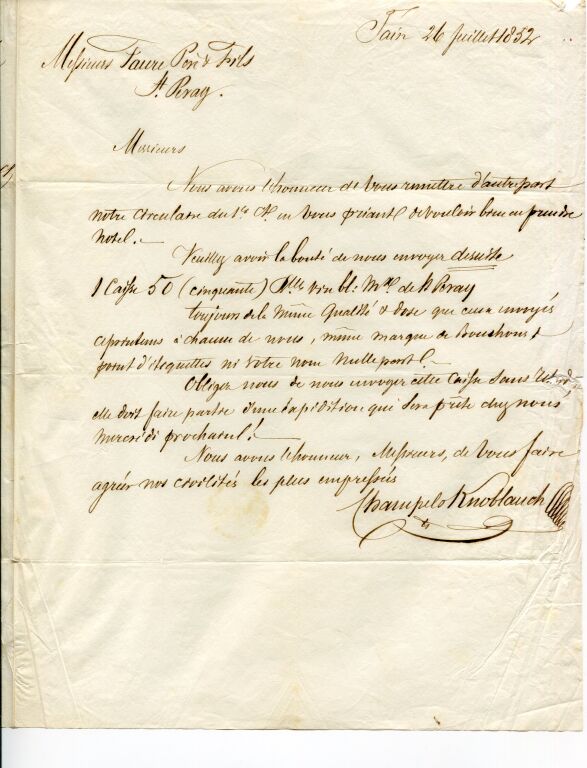 Tain 26 Juillet 1852
Messieurs Faure Père & Fils
St. Peray.
Messieurs
Nous avons l'honneur de vous remettre d'autrepart
notre circulaire du 1er Ct. en vous priant de vouloir bien en prendre
note.
Veuillez avoir la bonté de nous envoyer de suite
1 Caisse 50 (cinquante) Blls vin bl: Mx de St Peray
toujours de la même Qualité & dose que ceux envoyés
à chacun de nous, même marque de Bouchons &
point d'étiquettes ni votre nom nullepart.
Obligez nous de nous envoyer cette Caisse sans retard,
elle doit faire partie d'une expédition qui sera prête chez nous
mercredi prochain!
Nous avons l'honneur, Messieurs, de vous faire
agréer nos civilités les plus empressées
Knoblauch